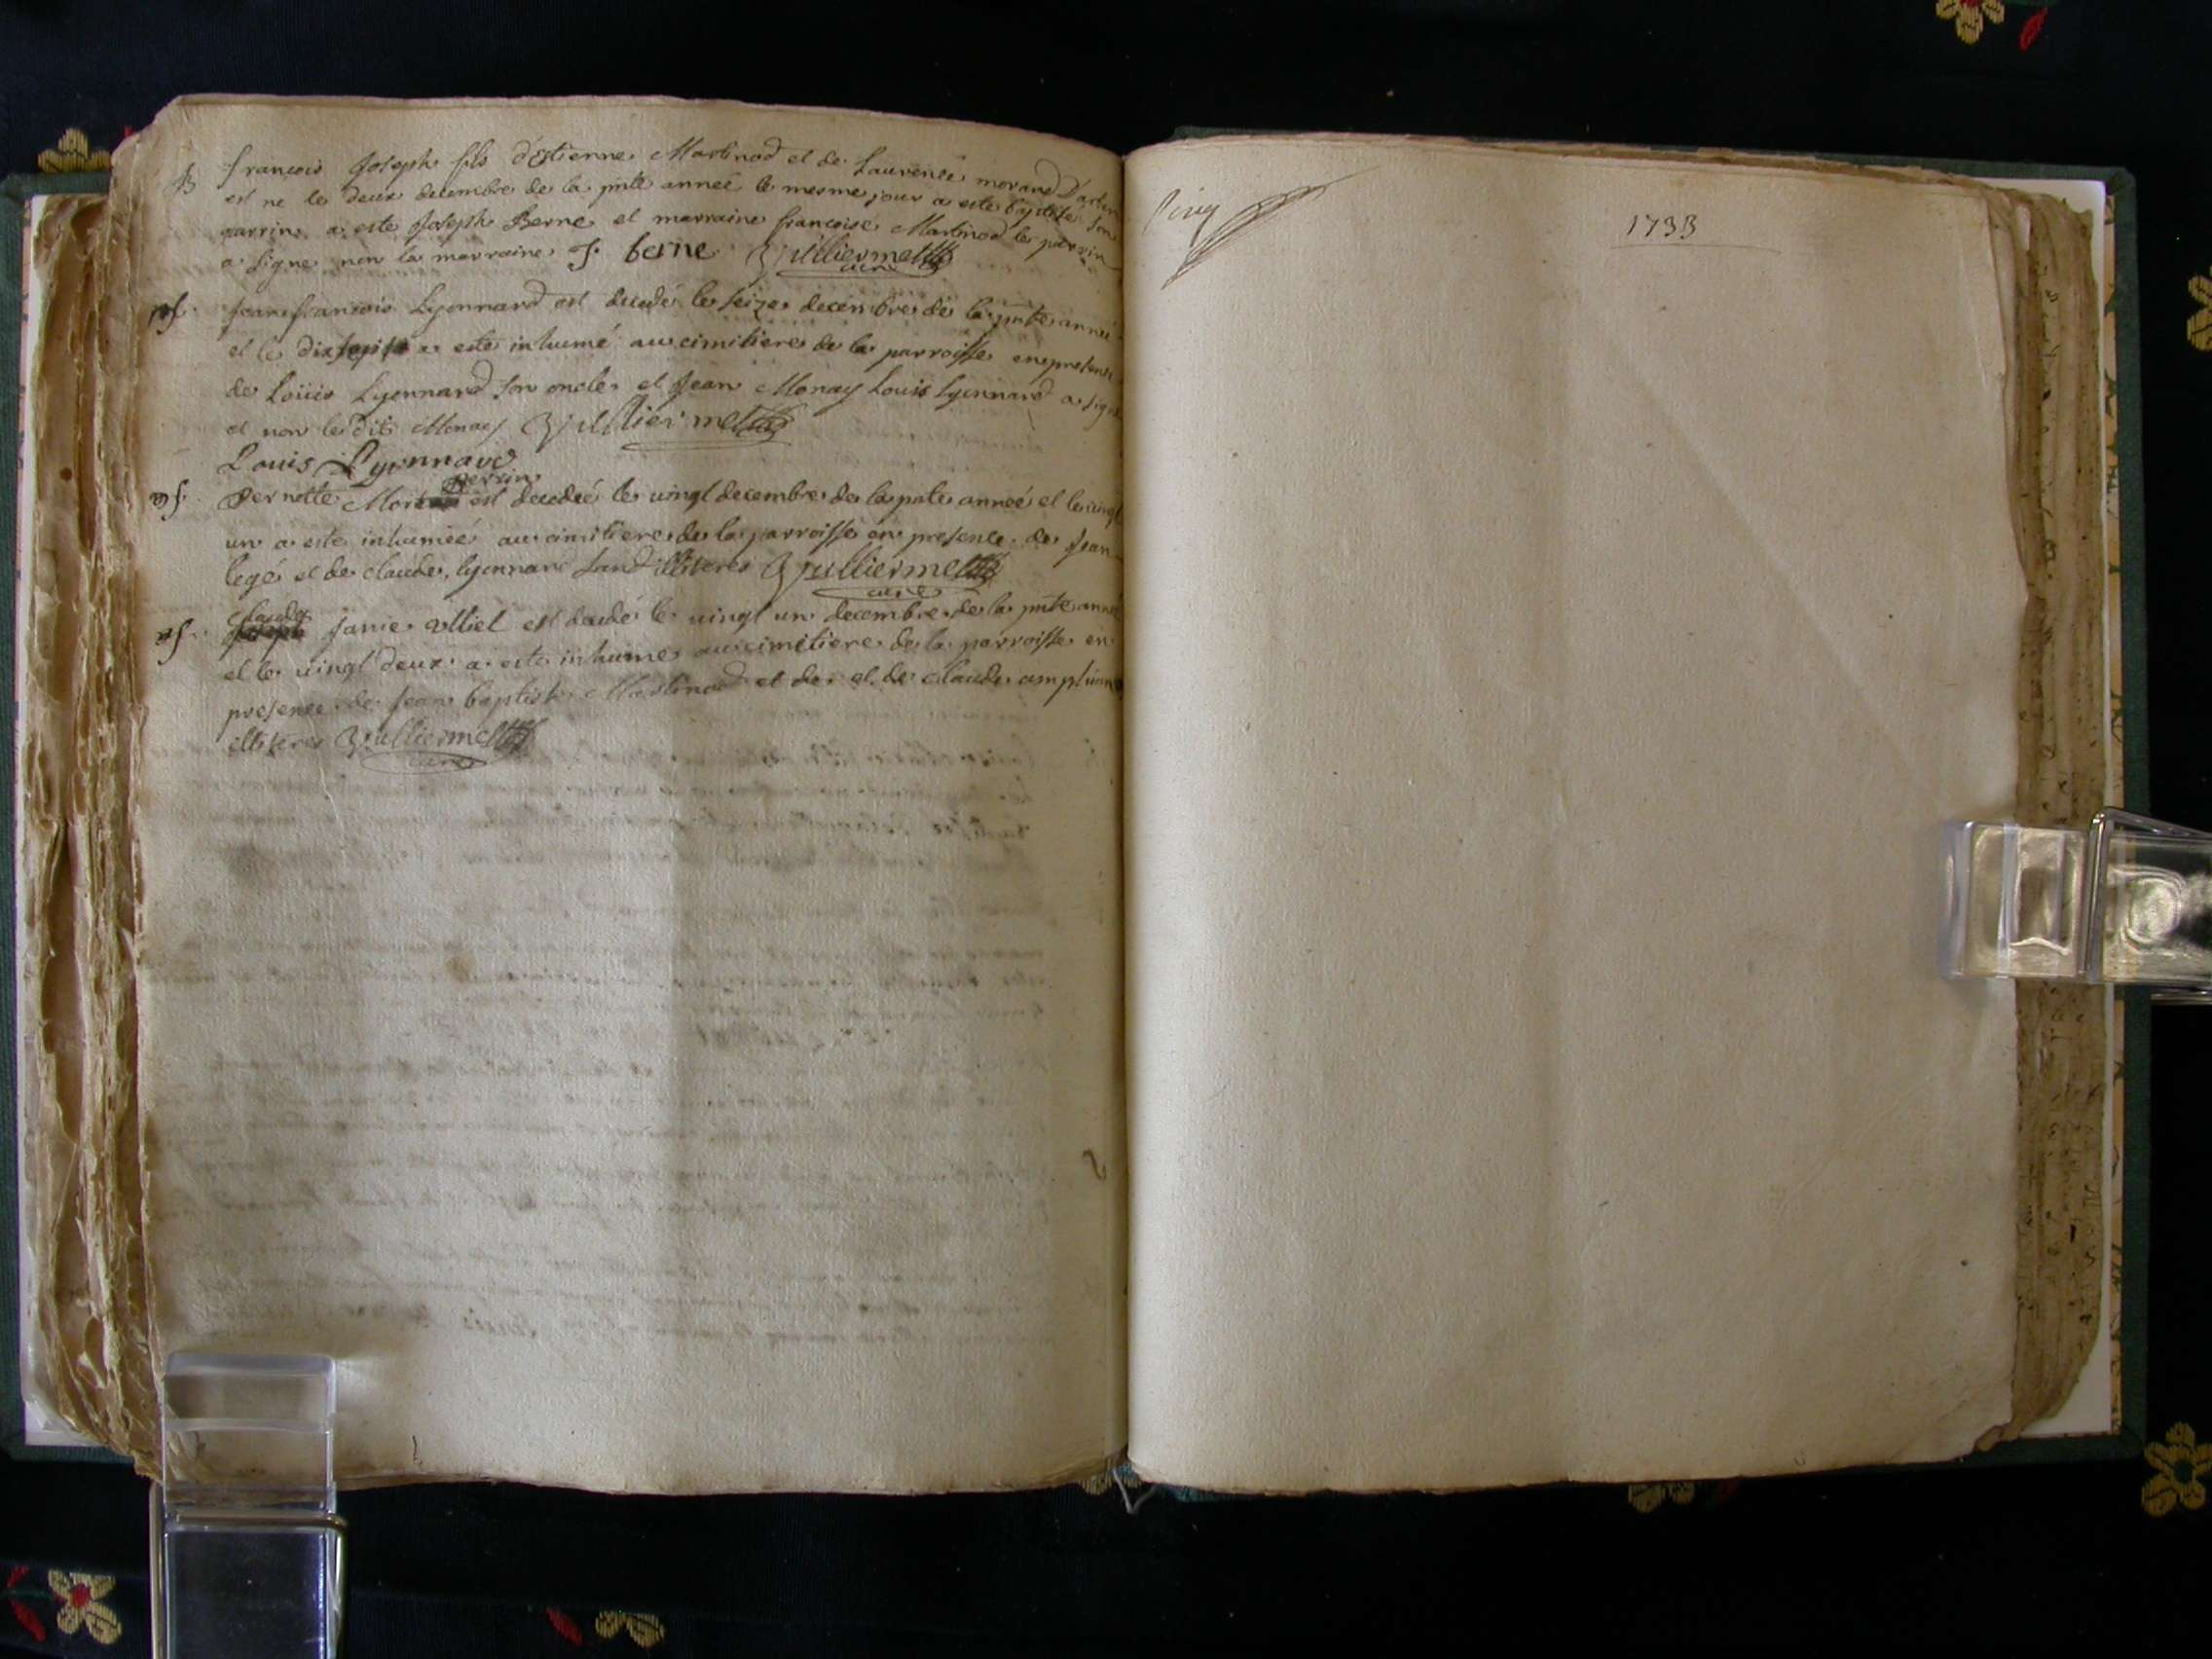 B françois Joseph fils d'Estienne Martinod et de Laurence morand
est ne le deux decembre de la pnte anneé le mesme jour a este baptise son
parrin a este Joseph Berne et marraine françoise Martinod le parrin
a signe non la marraine J. berne Vulliermet curé
Jean francois Lyonnard est decedé le seize decembre de la pnte anneé
et le dixsept a esté inhumé au cimitiere de la parroisse en presence
de Loüis Lyonnard son oncle et Jean Monay Louis Lyonnard a signé
et non le dit Monay Vulliermet
Louis Lyonnard
perrin
Pernette est decedeé le vingt decembre de la pnte anneé et le vingt
un a este inhumeé au cimitiere de la parroisse en presence de Jean
legé et de claude lyonnard illiteres Vulliermet
curé
claude
Janie est decedé le vingt un decembre de la pnte anneé
et le vingt deux a este inhume au cimitiere de la parroisse en
presence de Jean baptiste Martinod et de et de claude
illiteres Vulliermet
curé
1733